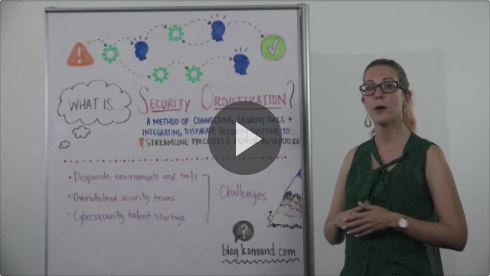 WHAT IS...
SECURITY ORCHESTRATION
A METHOD OF CONNECTING SECURITY TOOLS +
INTEGRATING DISPARATE SECURITY SYSTEMS TO
STREAMLINE PROCESSES &
• Disparate environments and tools
• Overwhelmed security teams
• Cybersecurity talent shortage
Challenges
?
blog.komand.com